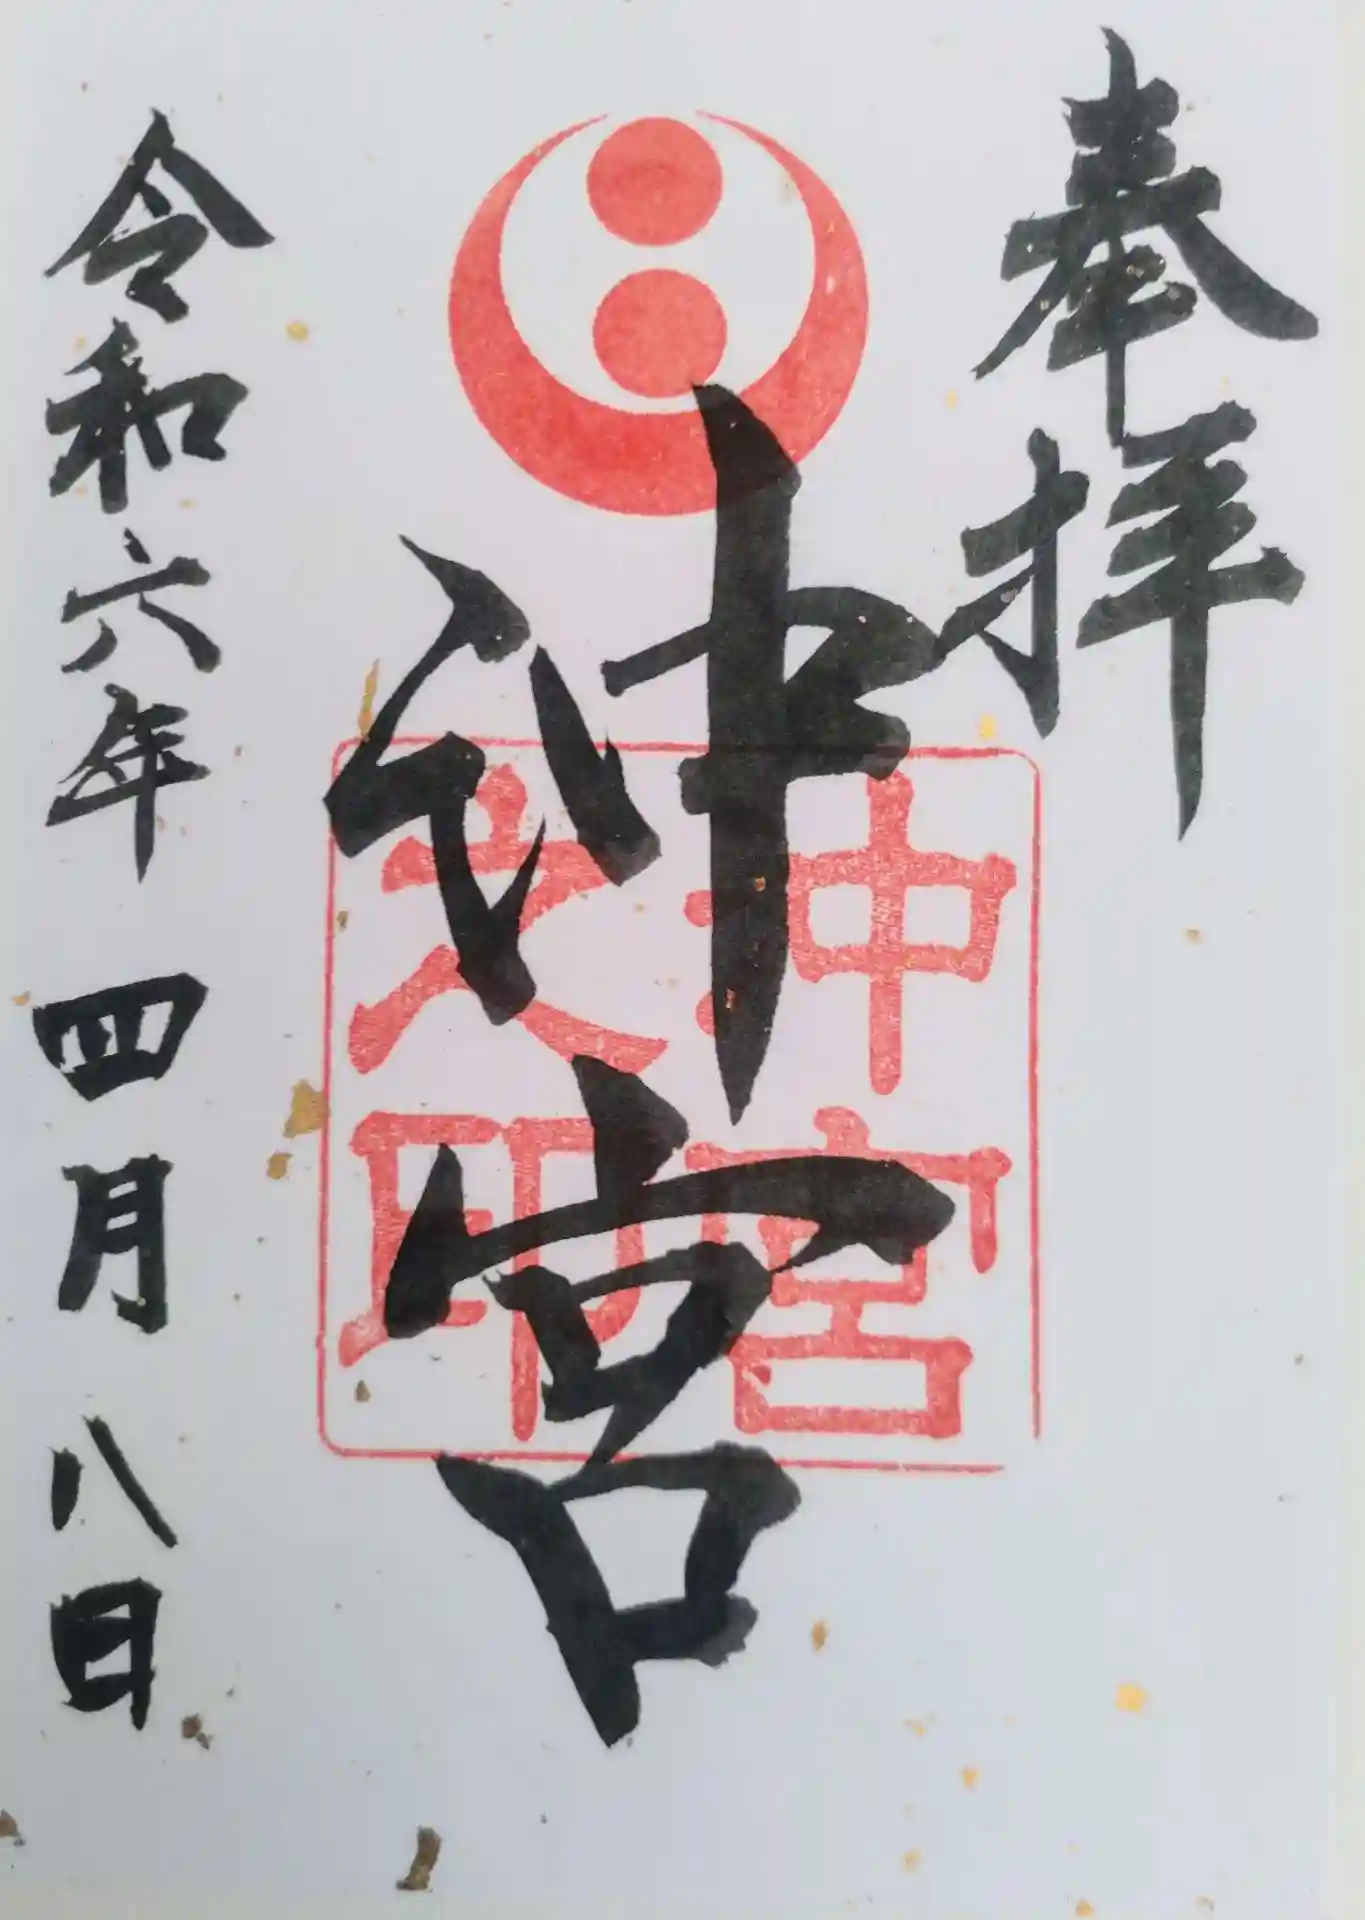 奉拝
沖宮
令和六年 四月 八日
沖宮
之印